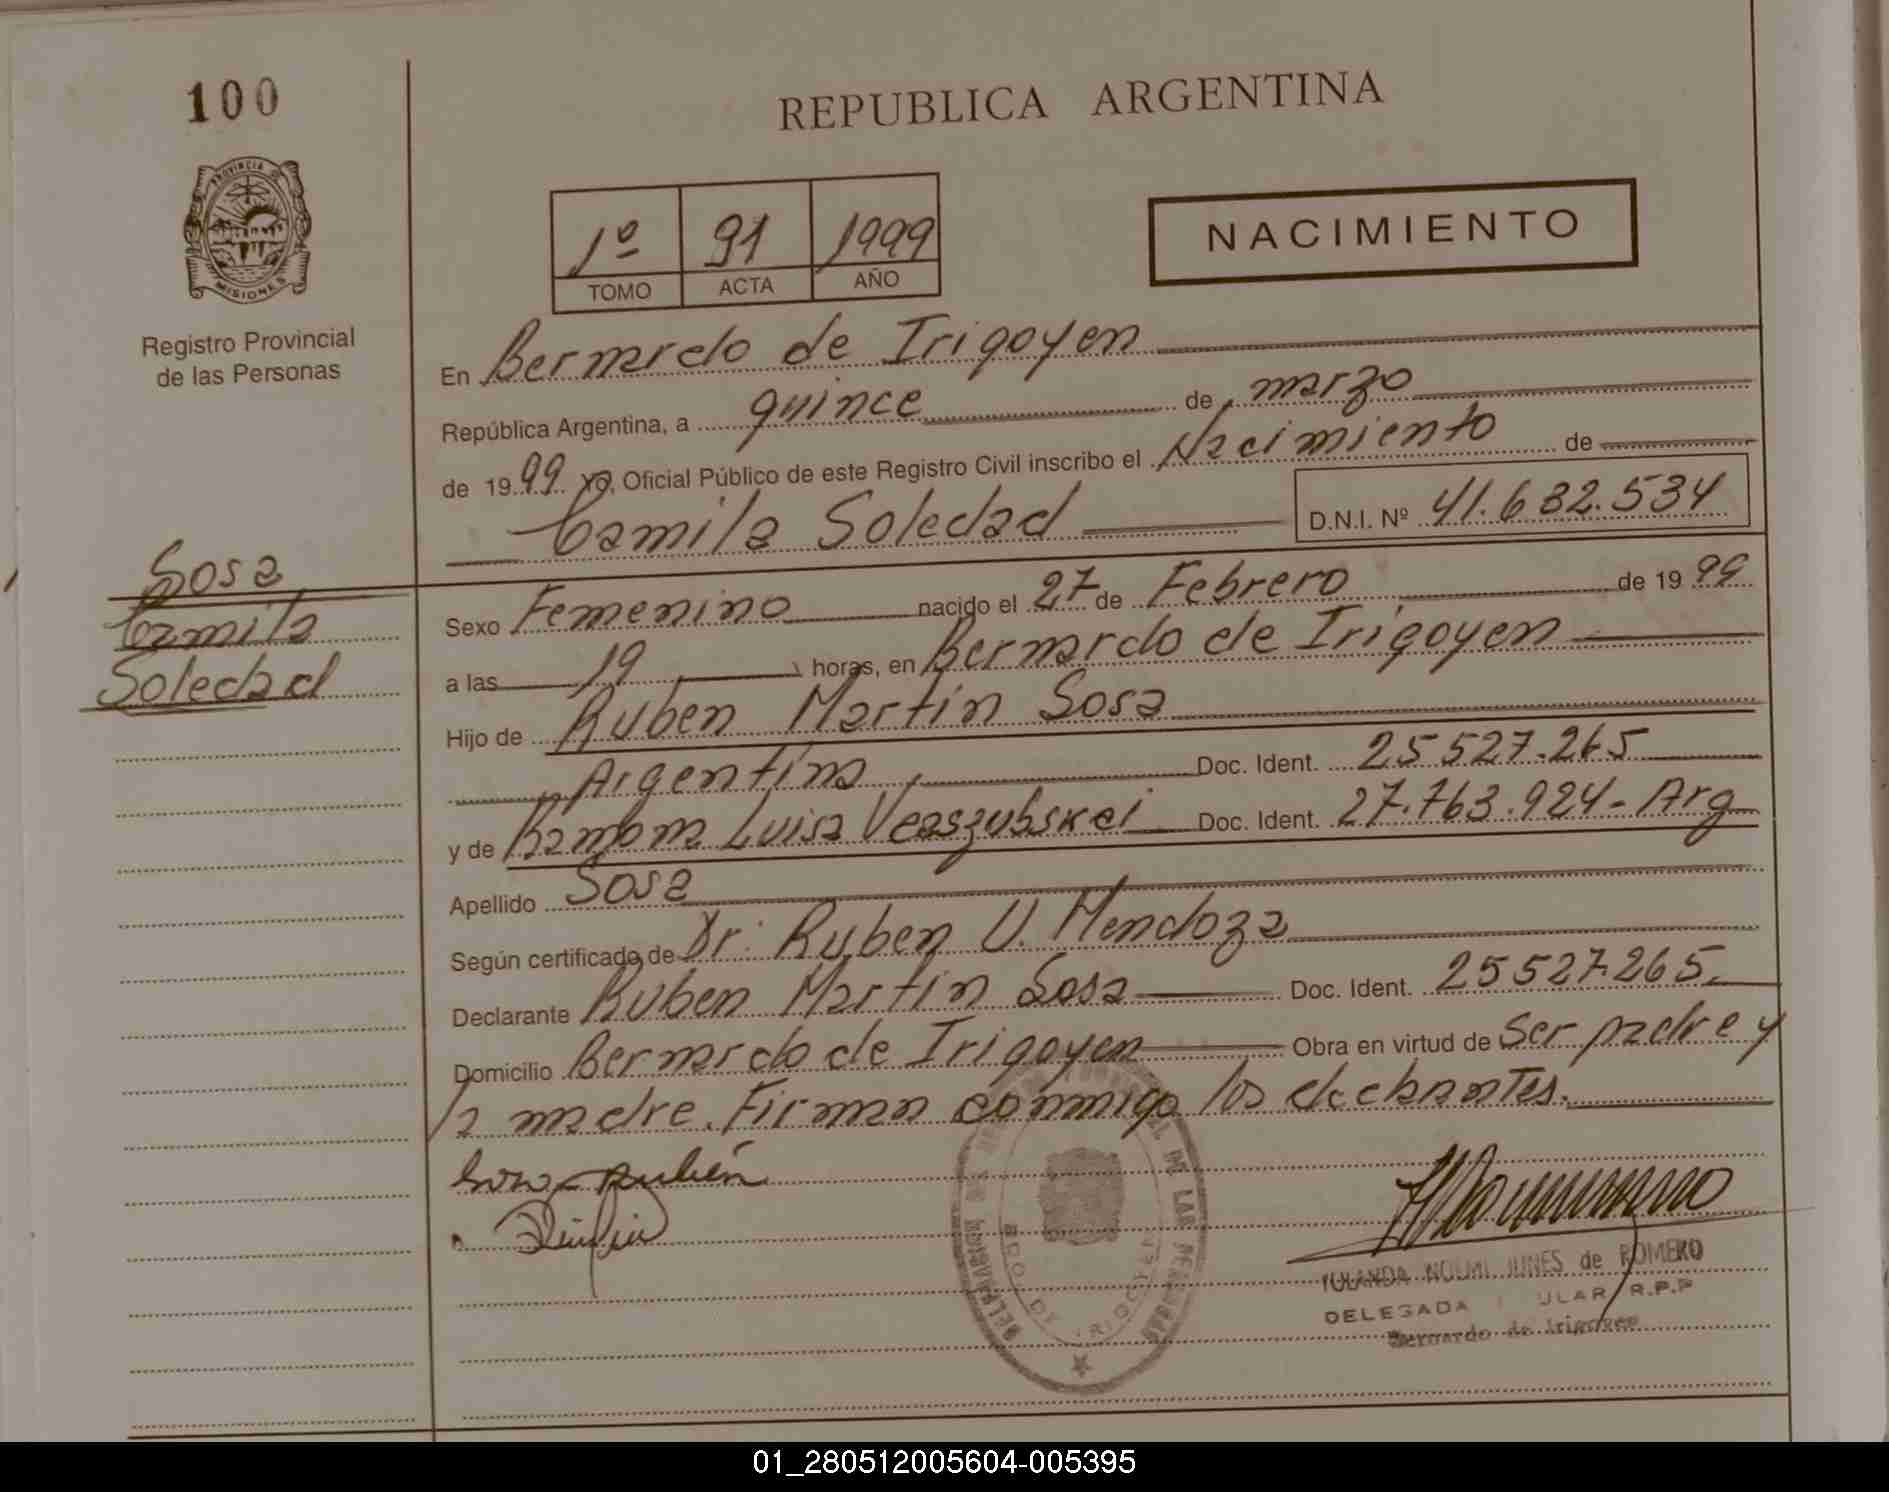 100
REPUBLICA ARGENTINA
PROVINCIA DE
MISIONES
Registro Provincial
de las Personas
1º 91 1999
TOMO ACTA AÑO
NACIMIENTO
En Bernardo de Irigoyen
República Argentina, a quince de marzo
de 1999 yo, Oficial Público de este Registro Civil inscribo el Nacimiento de
Camila Soledad D.N.I. Nº 41.632.534
Sosa
Camila
Soledad
Sexo Femenino nacido el 27 de Febrero de 1999
a las 19 horas, en Bernardo de Irigoyen
Hijo de Ruben Martin Sosa
Argentino Doc. Ident. 25527.265
y de Ramona Luisa Doc. Ident. 27.763.924- Arg
Apellido Sosa
Según certificado de Dr: Ruben U. Mendoza
Declarante Ruben Martin Sosa Doc. Ident. 25527.265.
Domicilio Bernardo de Irigoyen Obra en virtud de Ser padre y
la madre. Firman conmigo los declarantes.
Sosa Rubén
YOLANDA NOEMI JUNES de ROMERO
DELEGADA R.P.P
Bernardo de Irigoyen
DE LAS PERSONAS
BDO. DE IRIGOYEN
01_280512005604-005395